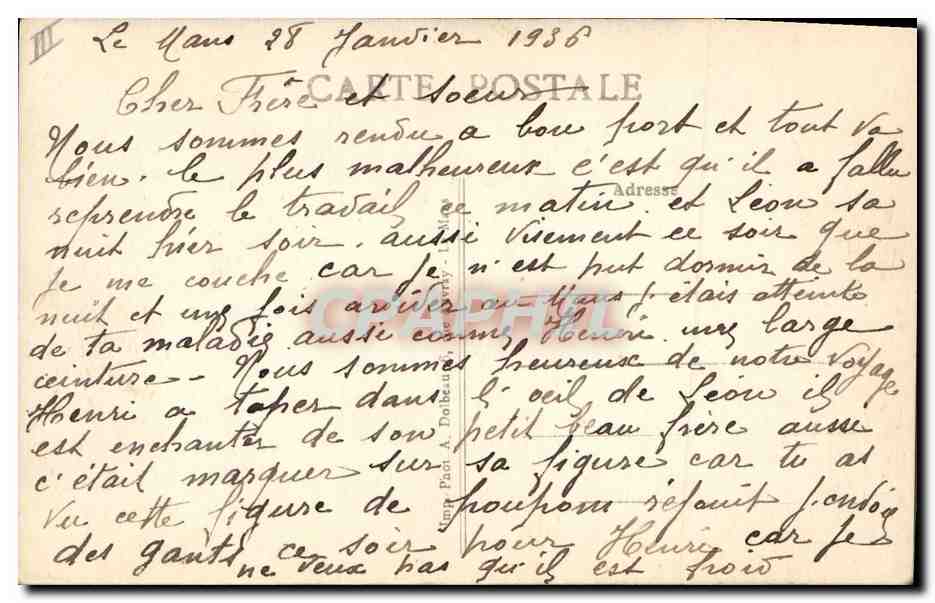 III
Le Mans 28 Janvier 1936
CARTE POSTALE
Cher Frère et soeur
Nous sommes rendu a bon port et tout va
bien. le plus malheureux c'est qu'il a fallu
Adresse
reprendre le travail ce matin. et Léon sa
nuit hier soir. aussi vivement ce soir que
je me couche car je n'est put dormir de la
nuit et une fois arriver au Mans j'étais atteinte
de ta maladie aussi comme Henri une large
ceinture - Nous sommes heureux de notre voyage
Henri a taper dans l'oeil de Léon il
est enchanter de son petit beau frère ausse
c'était marquer sur sa figure car tu as
vu cette figure de poupom réjouit j'envoie
des gants ce soir pour Henri car je
ne veux pas qu'il est froid
Imp. Phot. A. Dolbeau, Le Mans
CPAPHIL